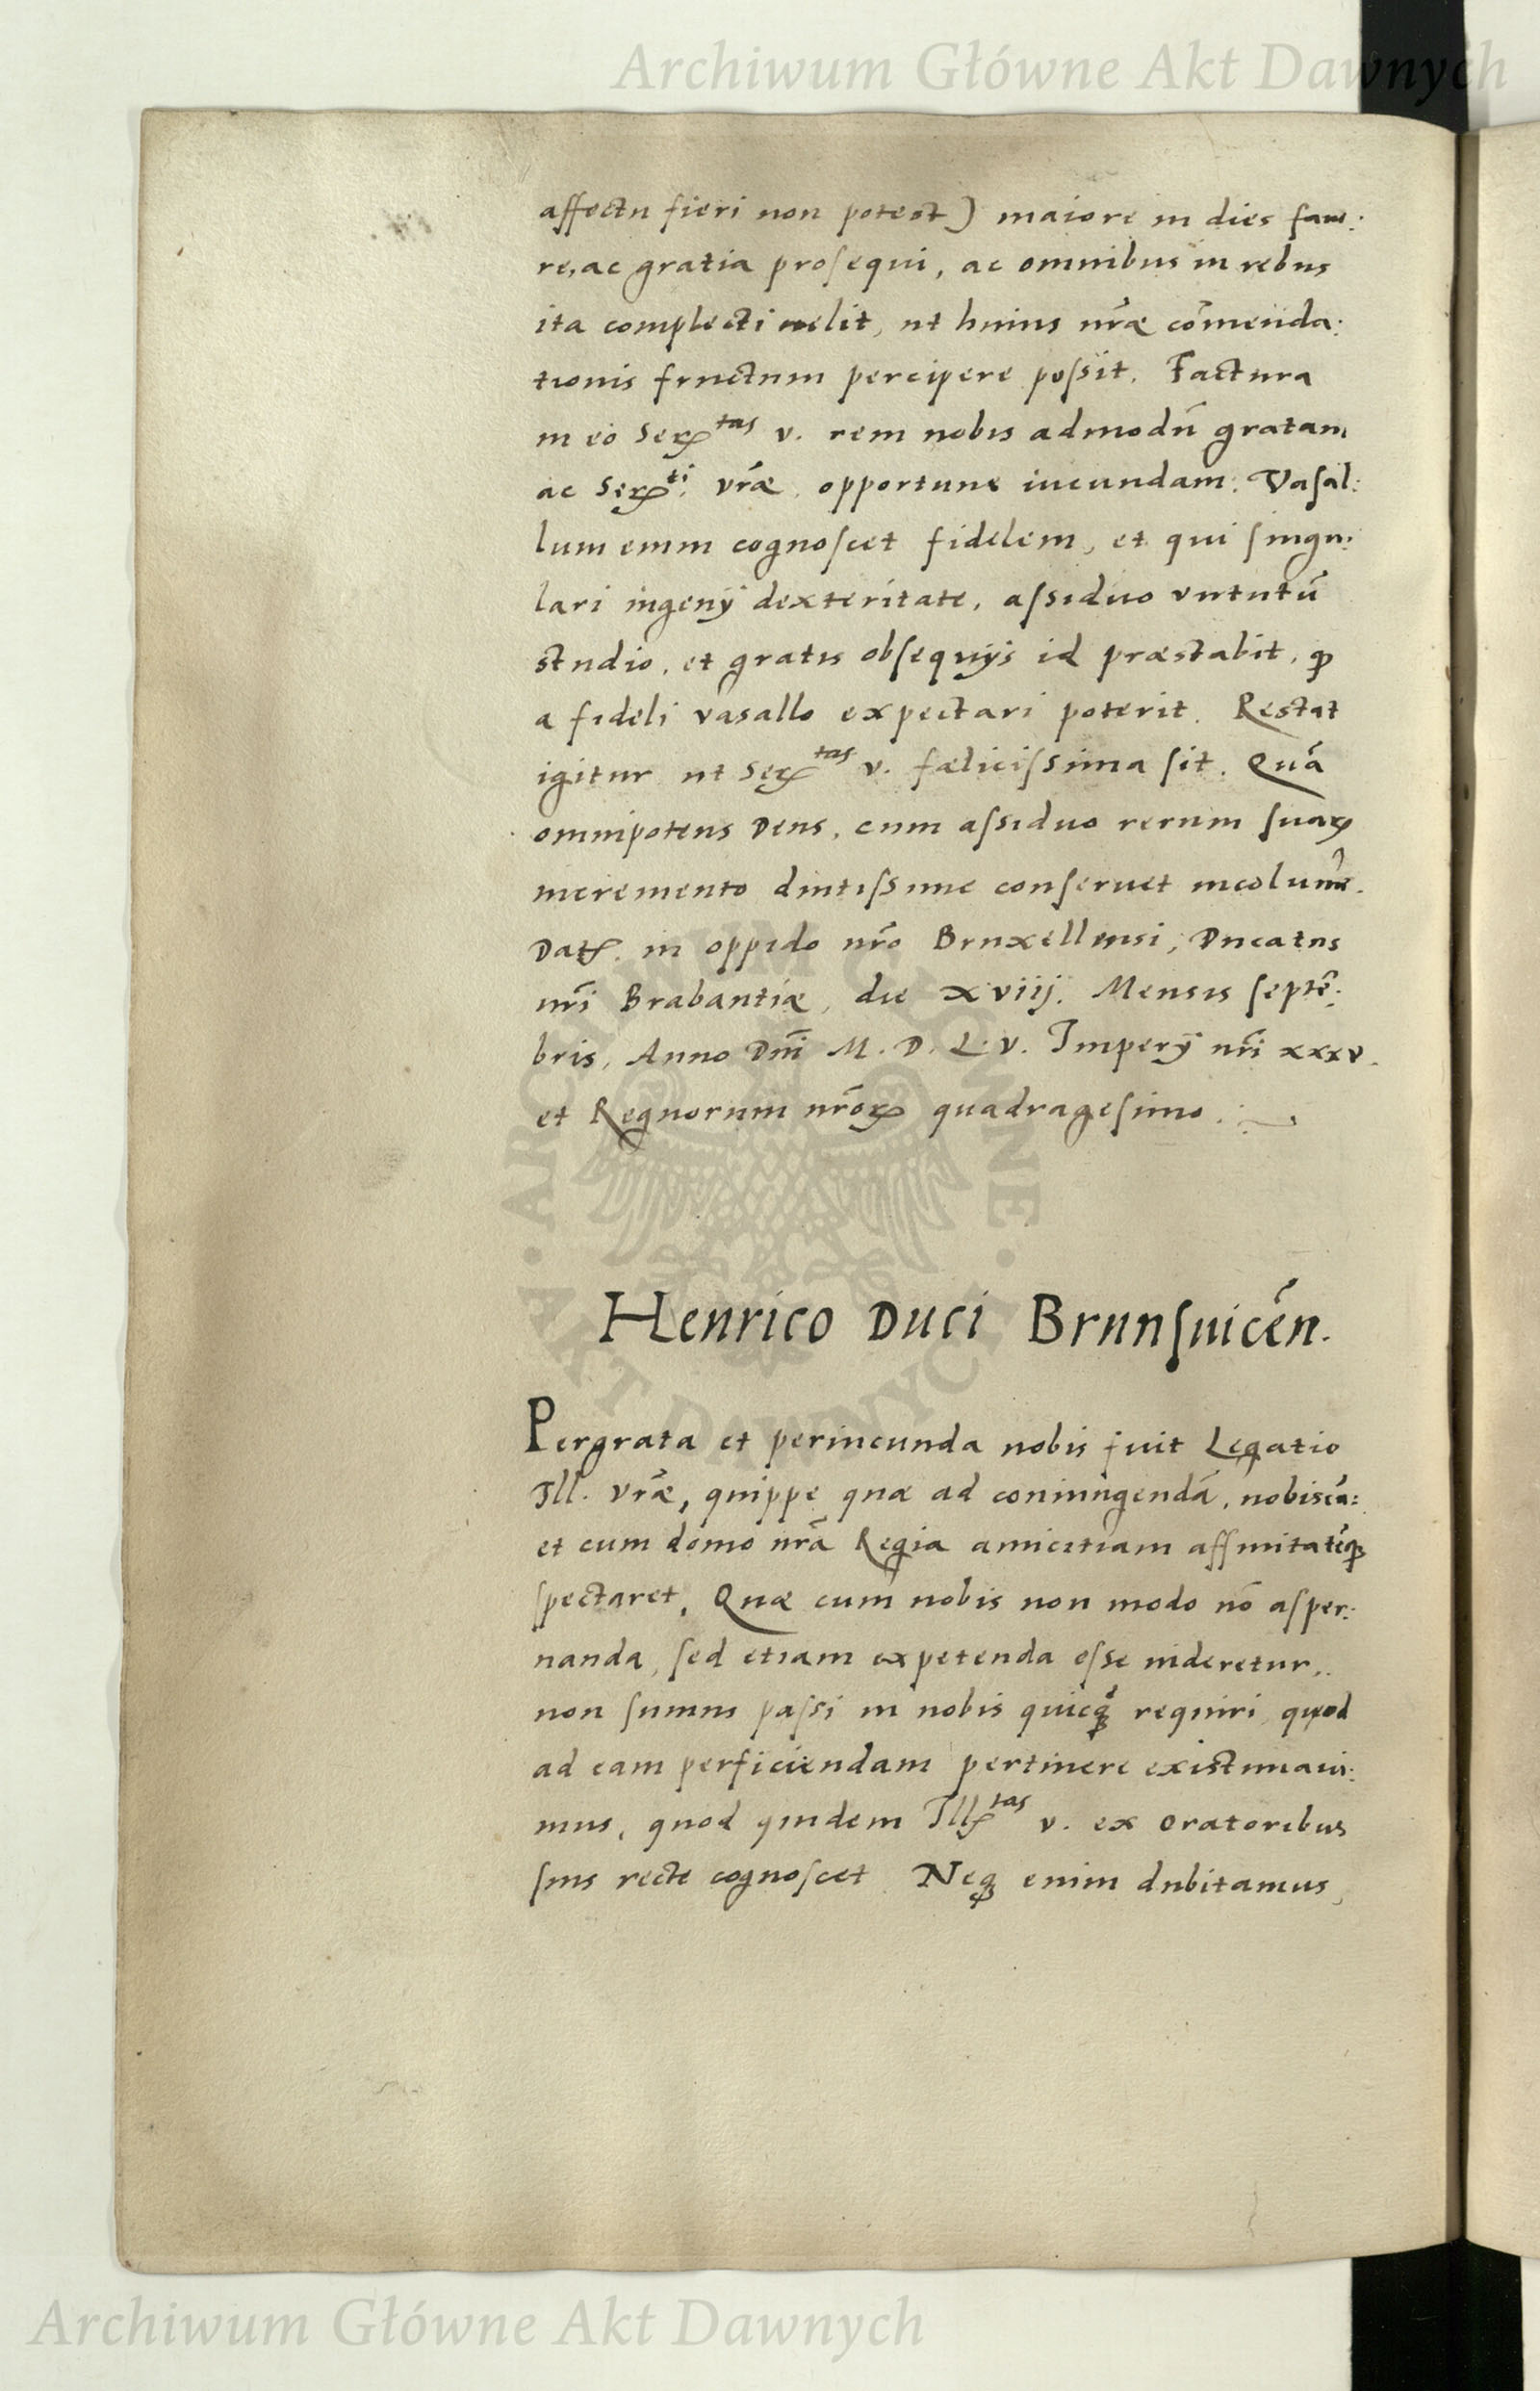 Archiwum Główne Akt Dawnych
affectu fieri non potest) maiore in dies fauo:
re, ac gratia prosequi, ac omnibus in rebus
ita complecti uelit, ut huius nr̃ae cõmenda:
tionis fructum percipere possit. Factura
in eo Ser^tas v. rem nobis admodũ gratam
ac Ser^ti vr̃ae, opportune iucundam. Vasal:
lum enim cognoscet fidelem, et qui singu:
lari ingenij dexteritate, assiduo virtutũ
studio, et gratis obsequijs id præstabit, qđ
a fideli vasallo expectari poterit. Restat
igitur ut Ser^tas v. fælicissima sit. Quã
omnipotens Deus, cum assiduo rerum suaꝝ
incremento diutissime conseruet incolumẽ.
Dat. in oppido nr̃o Bruxellensi, Ducatus
nr̃i Brabantiæ, die xviij. Mensis septẽ:
bris, Anno Dñi M. D. L. v. Imperij nr̃i xxxv.
et Regnorum nr̃oꝝ quadragesimo.
Henrico Duci Brunsuicẽn.
Pergrata et periucunda nobis fuit Legatio
Ill. vr̃æ, quippe quæ ad coniungendã, nobiscũ:
et cum domo nr̃a Regia amicitiam affinitatẽqꝫ
spectaret, Quæ cum nobis non modo nõ asper:
nanda, sed etiam expetenda esse uideretur,
non sumus passi in nobis quicqꝫ̃ requiri, quod
ad eam perficiendam pertinere existimaui:
mus, quod quidem Ill^tas v. ex oratoribus
suis recte cognoscet. Neqꝫ enim dubitamus,
ARCHIWUM GŁÓWNE AKT DAWNYCH
Archiwum Główne Akt Dawnych